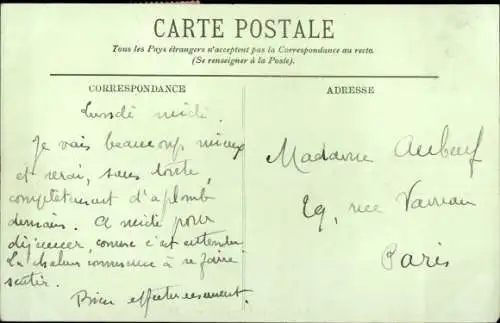 CARTE POSTALE
Tous les Pays étrangers n'acceptent pas la Correspondance au recto.
(Se renseigner à la Poste).
CORRESPONDANCE
Lundi midi.
Je vais beaucoup mieux
et serai, sans doute,
complètement d'aplomb
demain. A midi pour
déjeuner, comme c'est entendu.
La chaleur commence à se faire
sentir.
Bien affectueusement.
ADRESSE
Madame Auboeuf
29, rue Vaneau
Paris